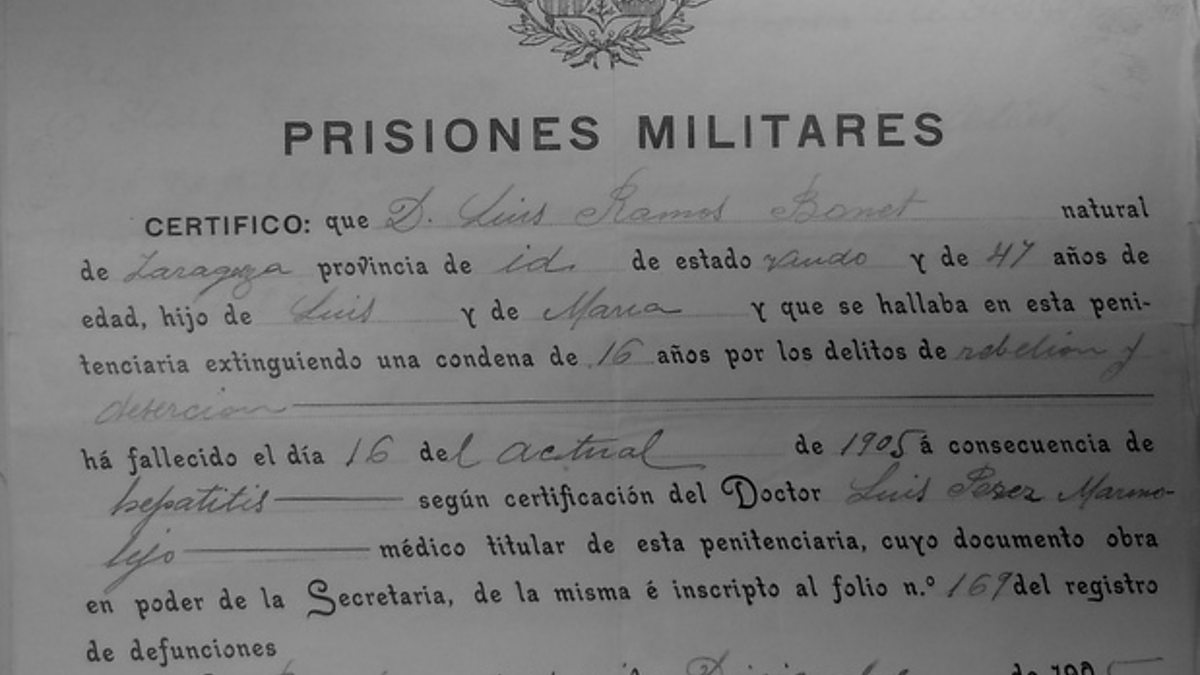 PRISIONES MILITARES
CERTIFICO: que D. Luis Ramos Bonet natural
de Zaragoza provincia de id. de estado y de 47 años de
edad, hijo de Luis y de Maria y que se hallaba en esta peni-
tenciaria extinguiendo una condena de 16 años por los delitos de rebelion y
desercion
há fallecido el día 16 del actual de 1905 á consecuencia de
hepatitis según certificación del Doctor Luis Perez Marmo-
lejo médico titular de esta penitenciaria, cuyo documento obra
en poder de la Secretaria, de la misma é inscripto al folio n.º 169 del registro
de defunciones
de 1905